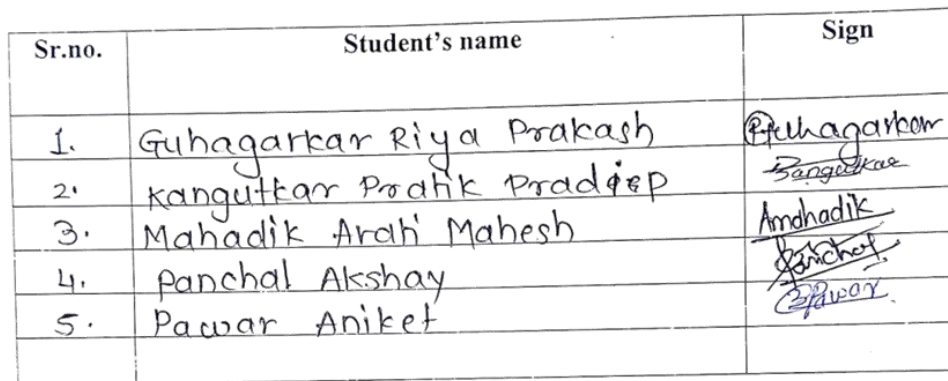 Sr.no. Student's name Sign
1. Guhagarkar Riya Prakash Guhagarkar
2. Kangutkar Pratik Pradeep
3. Mahadik Arati Mahesh Amahadik
4. Panchal Akshay
5. Pawar Aniket Pawar